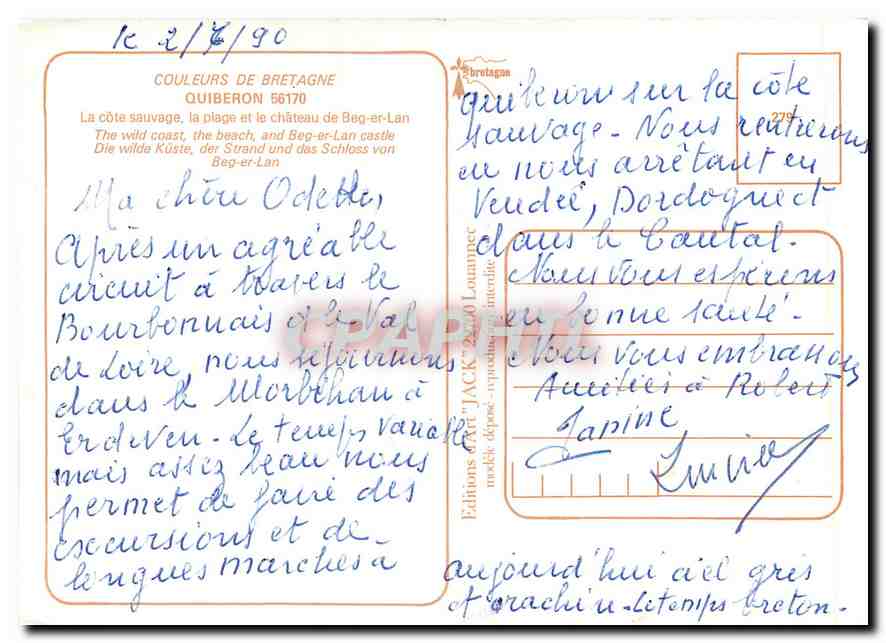 le 2/7/90
COULEURS DE BRETAGNE
QUIBERON 56170
La côte sauvage, la plage et le château de Beg-er-Lan
The wild coast, the beach, and Beg-er-Lan castle
Die wilde Küste, der Strand und das Schloss von
Beg-er-Lan
Ma chère Odette,
Après un agréable
circuit à travers le
Bourbonnais et le Val
de Loire, nous séjournons
dans le Morbihan à
Erdeven - Le temps variable
mais assez beau nous
permet de faire des
excursions et de
longues marches à
bretagne
quiberon sur la côte
279
sauvage - Nous rentrerons
en nous arrêtant en
Vendée, Dordogne et
dans le Cantal.
Nous vous espérons
en bonne santé.
Nous vous embrassons
Amitiés à Robert
Janine
aujourd'hui ciel gris
et crachin - Le temps breton.
Editions d'Art "JACK" Louannec
modèle déposé - reproduction interdite
CPAPHIL